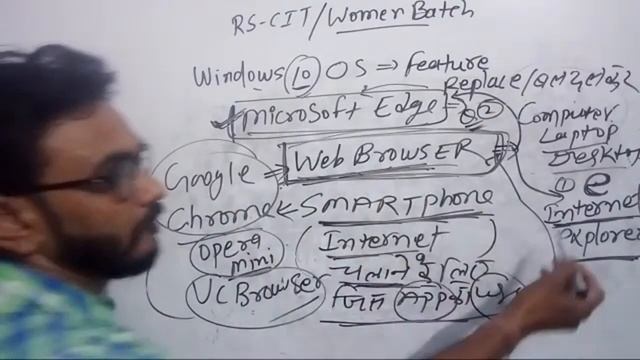 RS-CIT/Women Batch
Windows 10 OS ⇒ Feature
Replace/
Microsoft Edge ②
Computer
Laptop
Desktop
Web BROWSER
Google
Chrome ← SMARTphone
① e
Internet
explorer
opera
mini
Internet
चलाने के लिए
UC Browser
जिस APP का